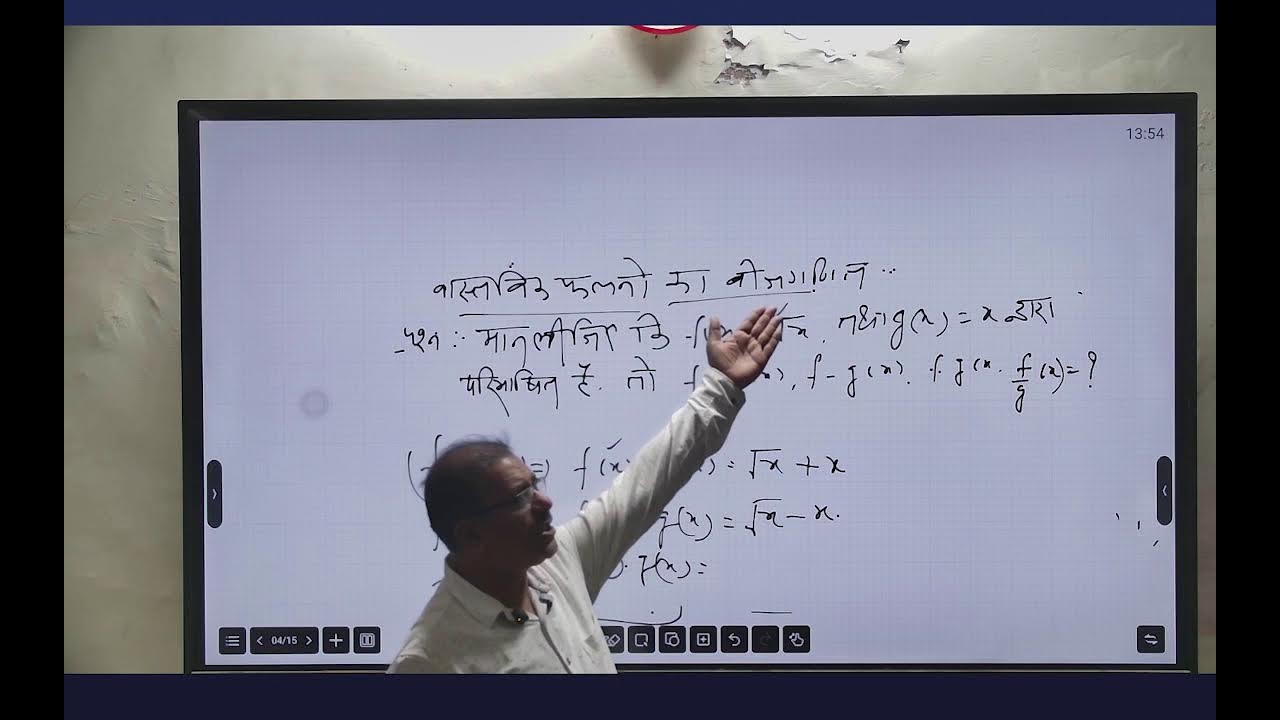 13:54
वास्तविक फलनो का बीजगणित ..
प्रश्न :- मानलीजिए कि √x, तथा g(x) = x द्वारा
परिभाषित है. तो f x), f - g(x). f. g(x. f/g (x) = ?
f(x) = √x + x
g(x) = √x - x.
f(x) =
04/15